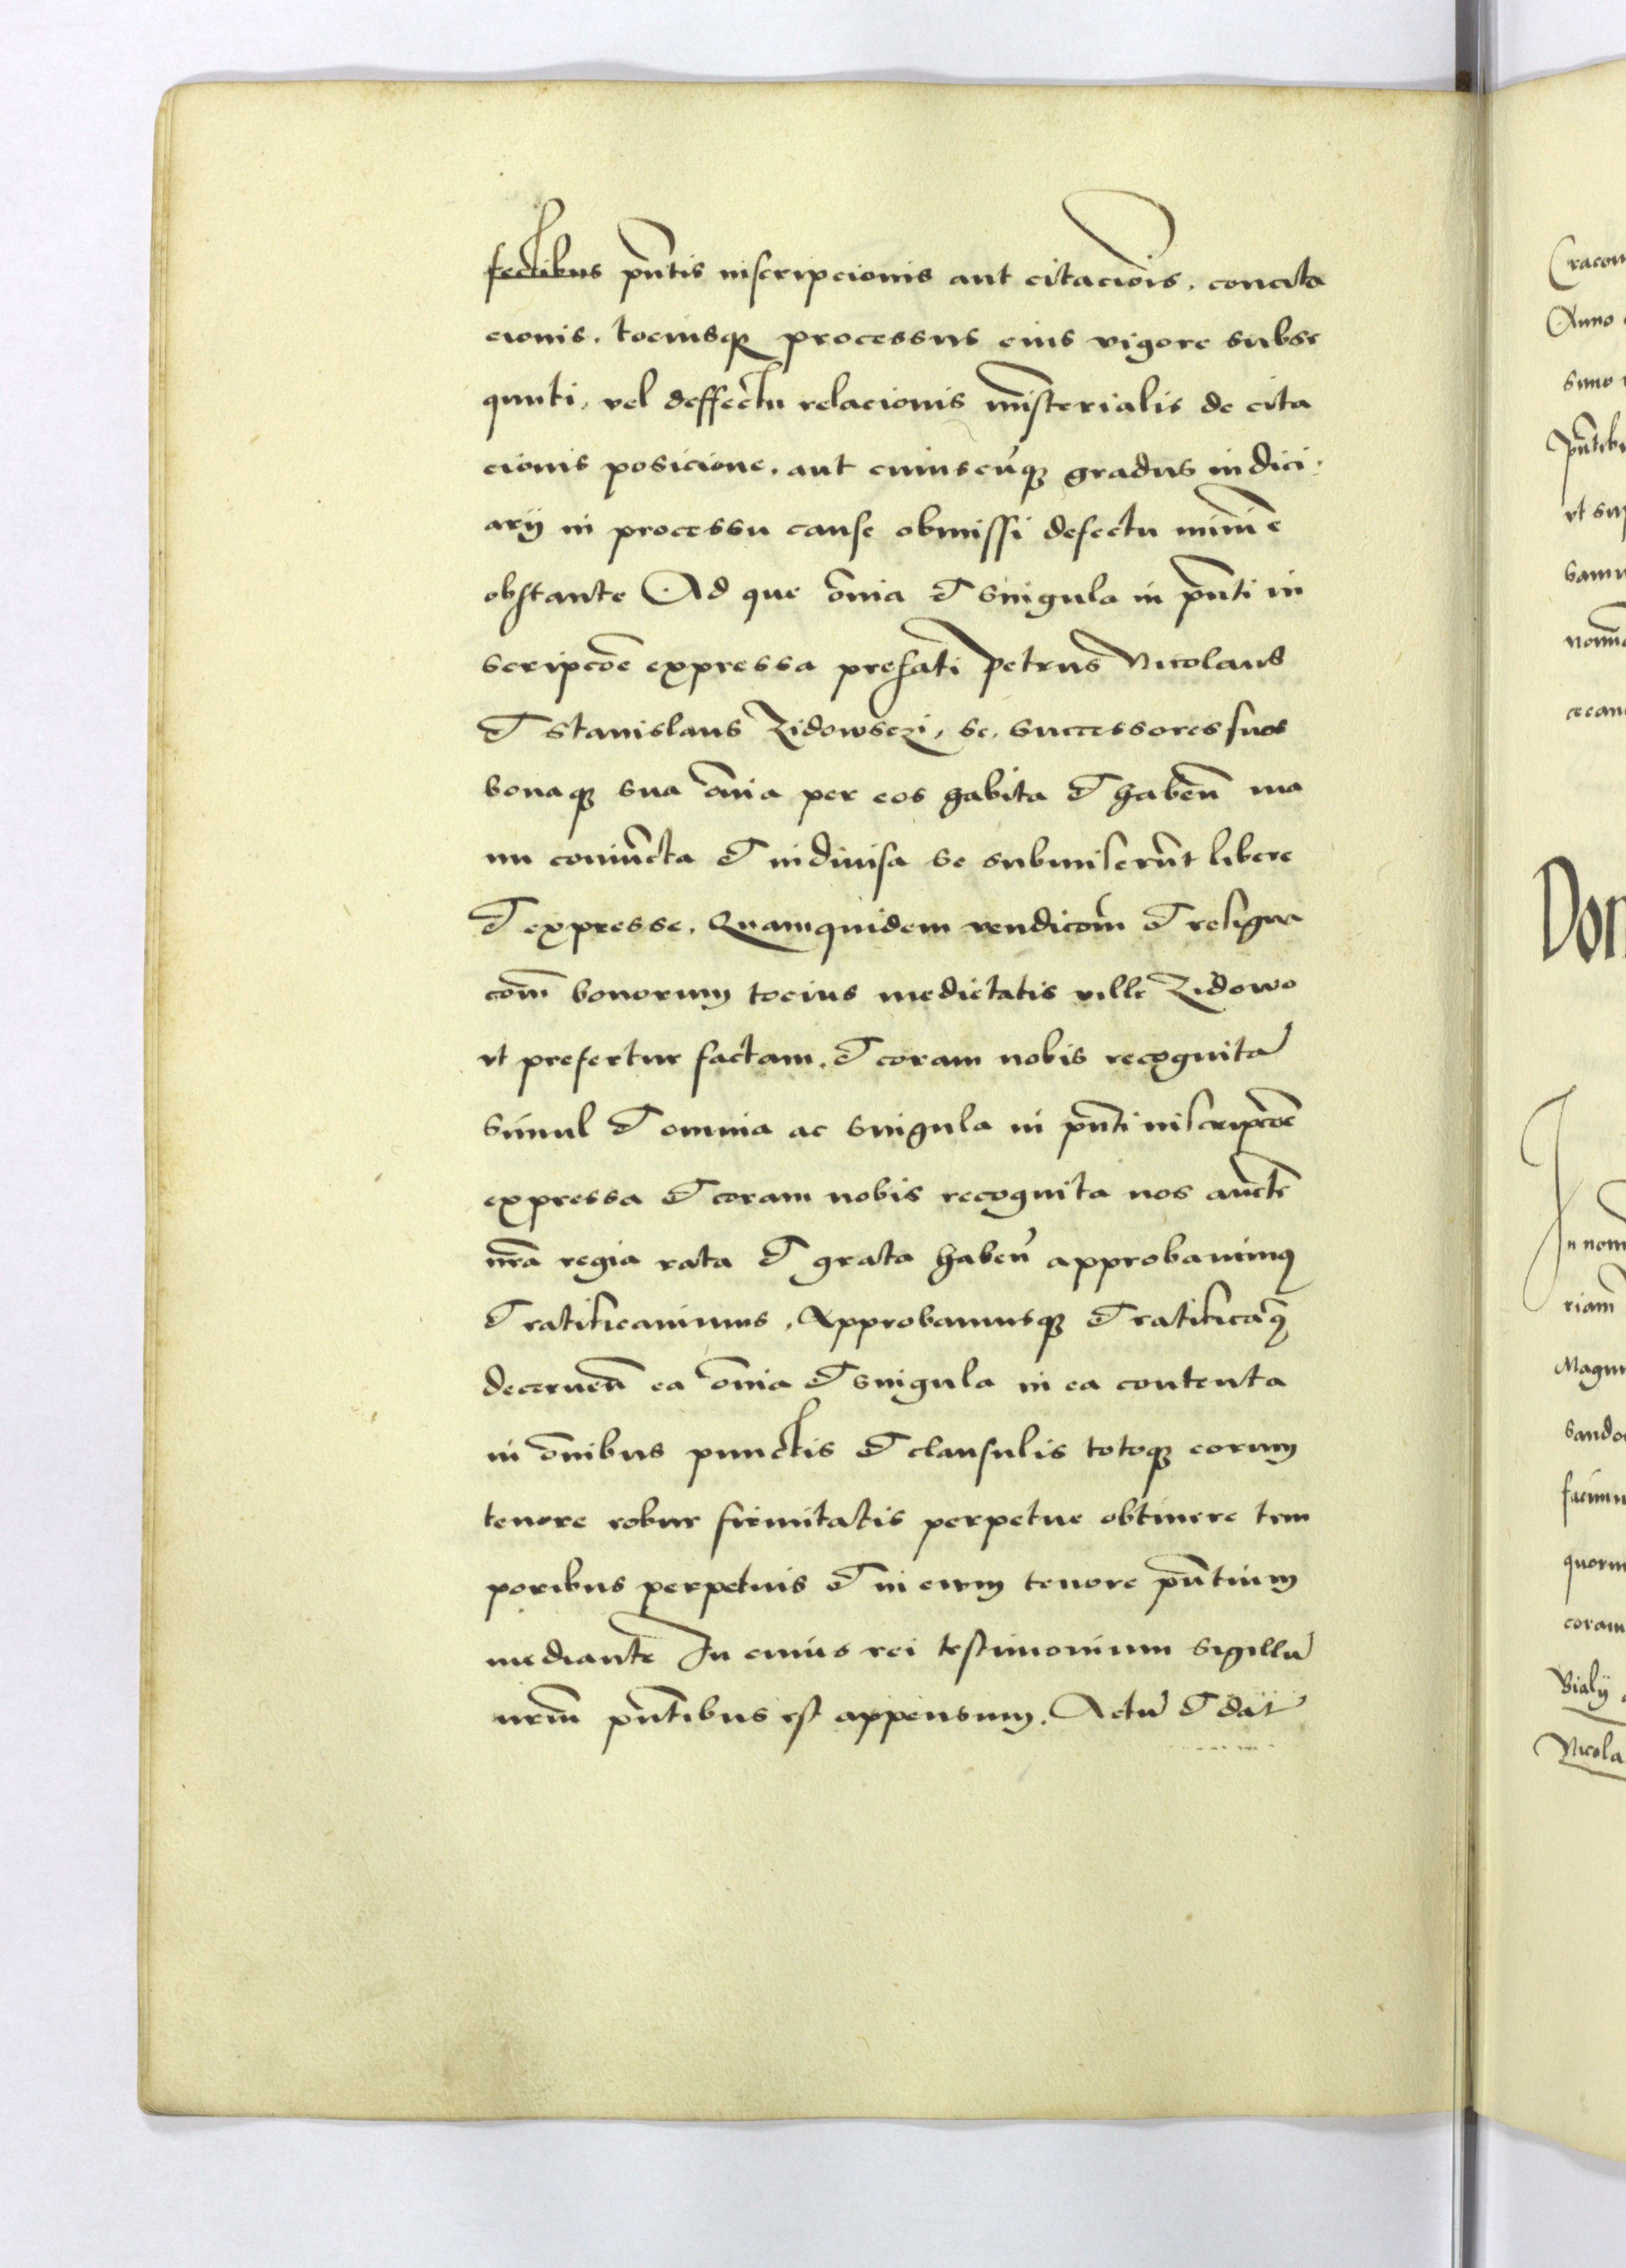 fectibus pn̄tis inscripcionis aut citaciois, concita
cionis, tociusq processus eius vigore subse
quuti, vel deffectu relacionis mīsterialis de cita
cionis posicione, aut cuiuscūq gradus iudici
arij in processu cause obmissi defectu minīe
obstante Ad que ōnia et singula in pn̄ti in
scripcōe expressa prefati Petrus Nicolaus
et Stanislaus Zidowsczi, se, successores suos
bonaq sua ōnia per eos habita et haben̄ ma
nu coniūcta et indiuisa se submiserūt libere
et expresse. Quamquidem vendicōm et resigna
cōm bonorum tocius medietatis ville Zidowo
vt prefertur factam, et coram nobis recognitā
simul et omnia ac singula in pn̄ti inscripcōe
expressa et coram nobis recognita nos aucte
nrā regia rata et grata haben̄ approbauimq
et ratificauimus, Approbamusq et ratificāq
decernen̄ ea ōnia et singula in ea contenta
in ōnibus punctis et clausulis totoq eorum
tenore robur firmitatis perpetue obtinere tem
poribus perpetuis et in eum tenore pn̄tium
mediante In cuius rei testimonium sigillū
nrm̄ pn̄tibus est appensum. Actū et dat
Cracou
Anno
Don
In nom
riam
Magn
coram
Bialij
Nicola